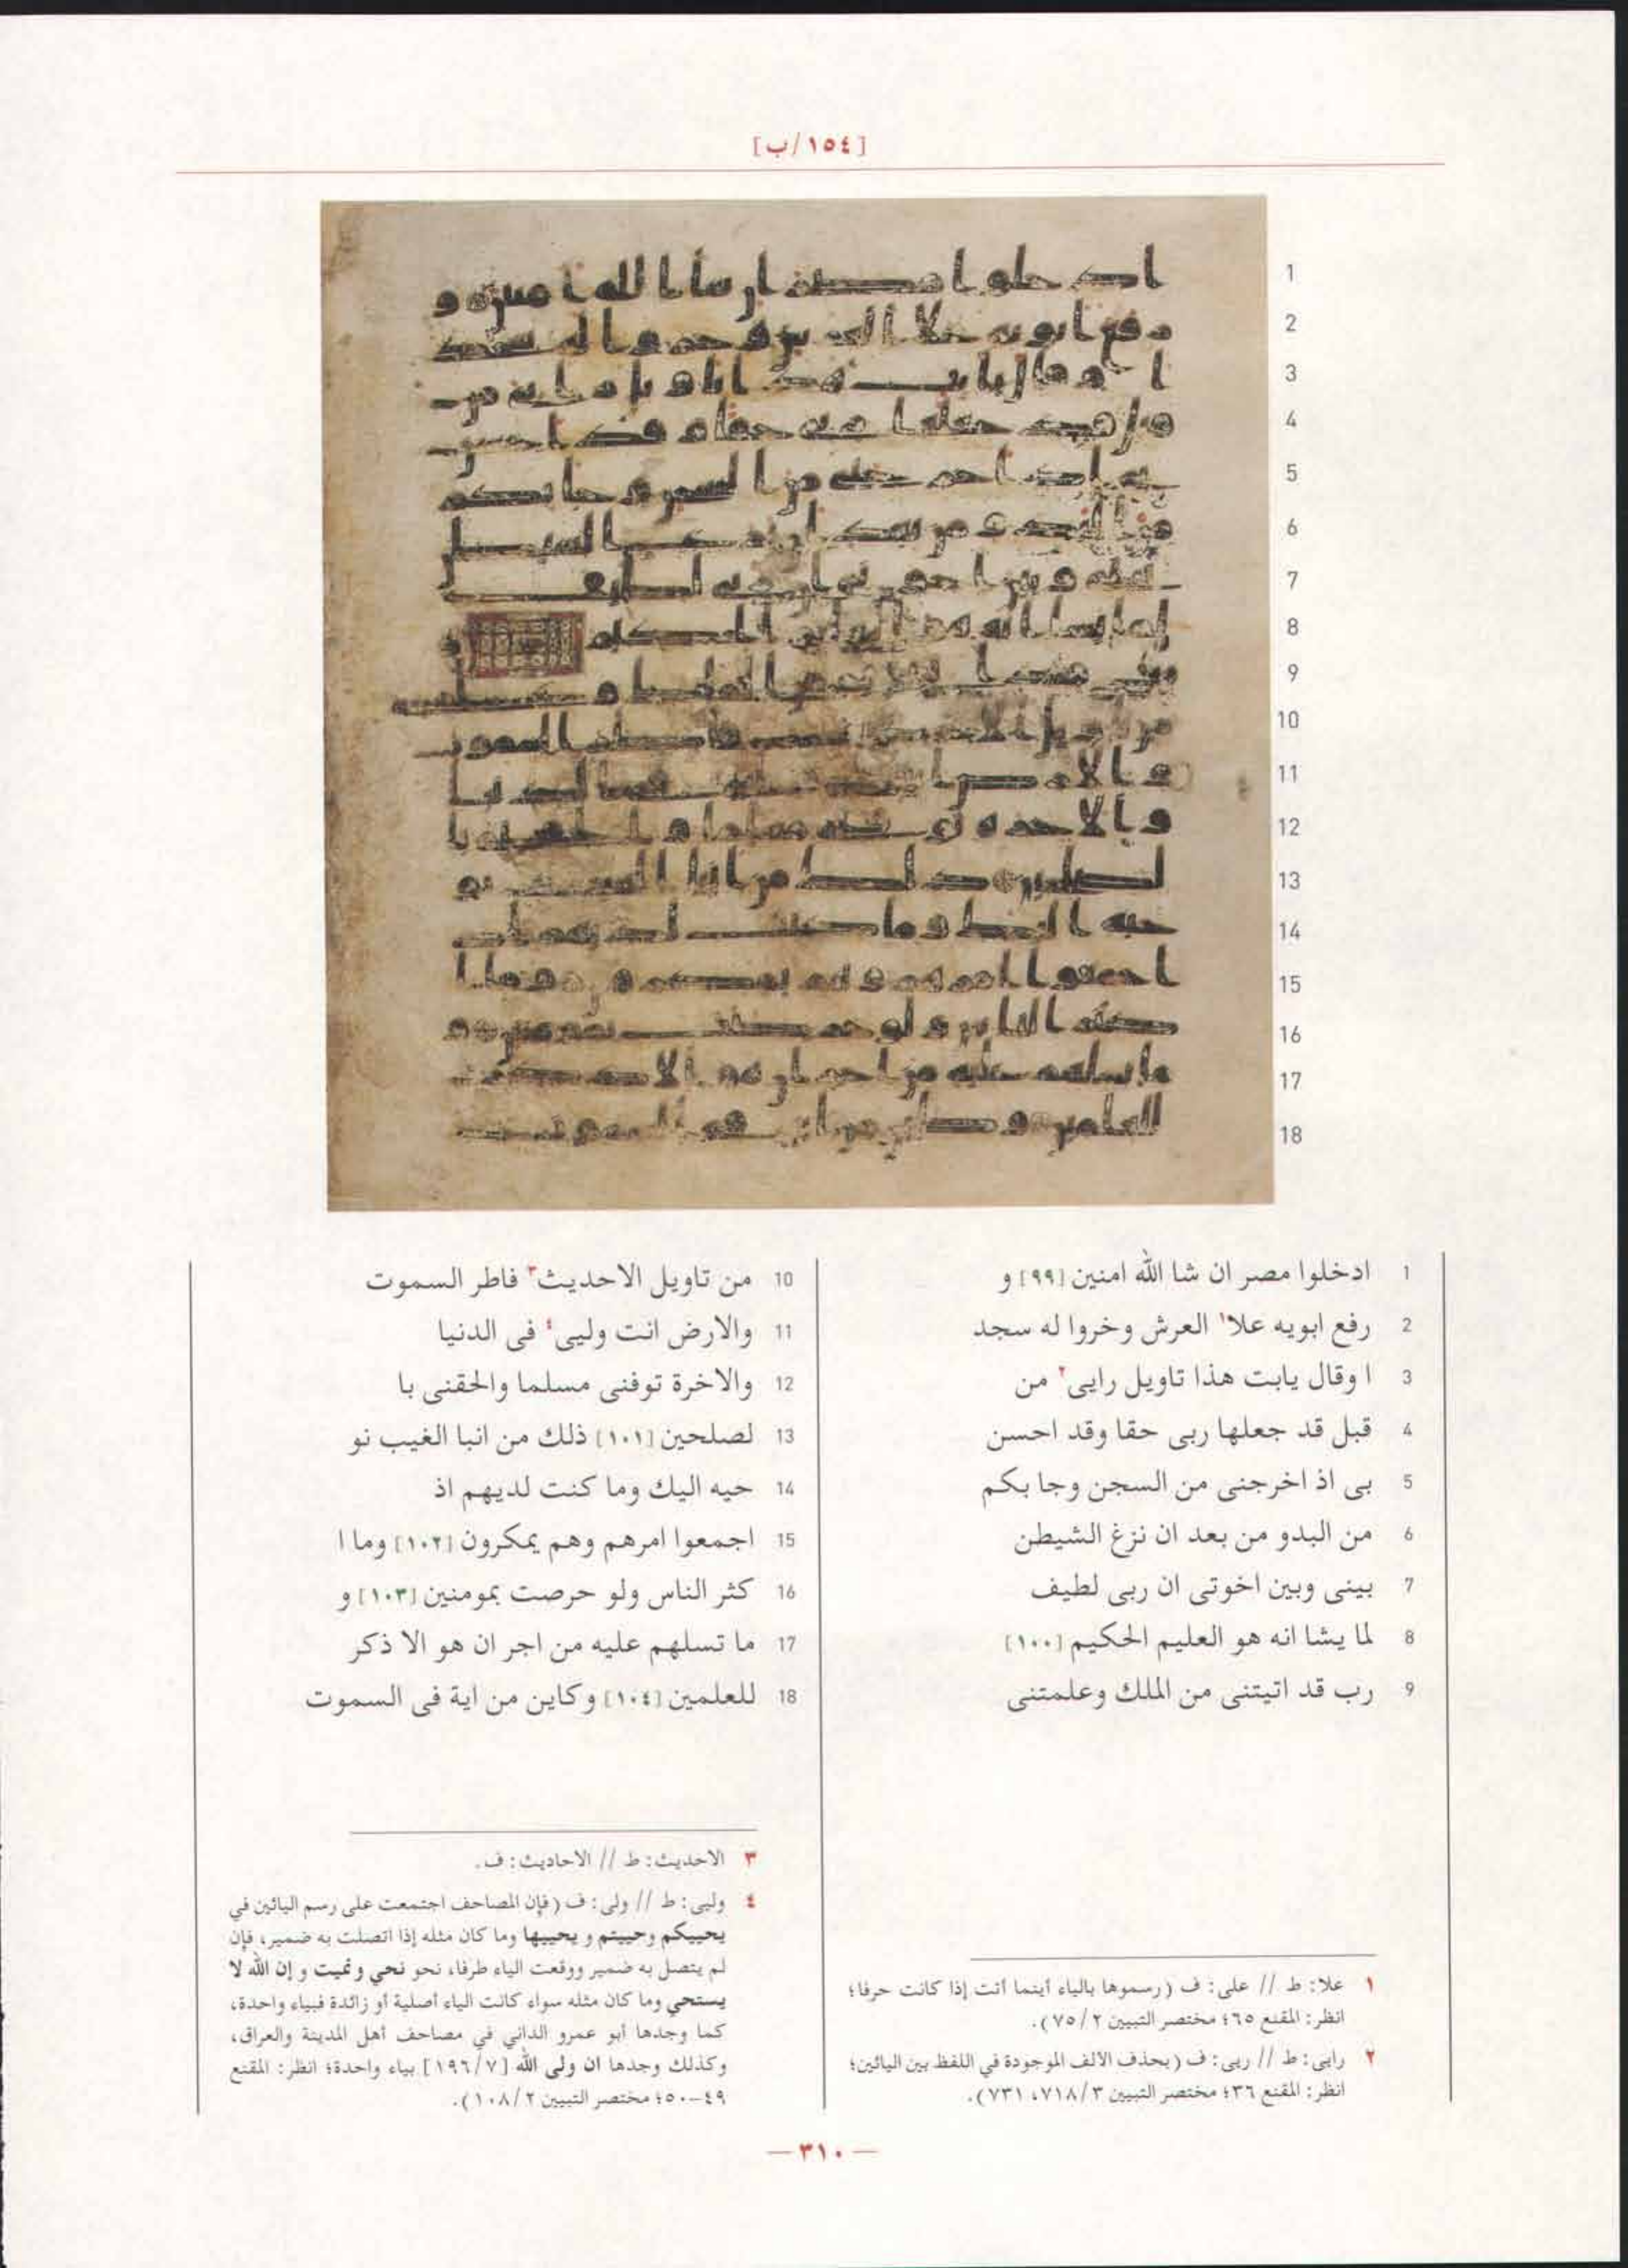 [١٥٤/ب]
1 ادخلوا مصر ان شا الله امنين [٩٩] و
2 رفع ابويه علا١ العرش وخروا له سجد
3 ا وقال يابت هذا تاويل رايى٢ من
4 قبل قد جعلها ربى حقا وقد احسن
5 بى اذ اخرجنى من السجن وجا بكم
6 من البدو من بعد ان نزغ الشيطن
7 بينى وبين اخوتى ان ربى لطيف
8 لما يشا انه هو العليم الحكيم [١٠٠]
9 رب قد اتيتنى من الملك وعلمتنى
10 من تاويل الاحديث٣ فاطر السموت
11 والارض انت وليى٤ فى الدنيا
12 والاخرة توفنى مسلما والحقنى با
13 لصلحين [١٠١] ذلك من انبا الغيب نو
14 حيه اليك وما كنت لديهم اذ
15 اجمعوا امرهم وهم يمكرون [١٠٢] وما ا
16 كثر الناس ولو حرصت بمومنين [١٠٣] و
17 ما تسلهم عليه من اجر ان هو الا ذكر
18 للعلمين [١٠٤] وكاين من اية فى السموت
١ علا: ط // على: ف (رسموها بالياء أينما أتت إذا كانت حرفا؛
انظر: المقنع ٦٥؛ مختصر التبيين ٢/ ٧٥).
٢ رايى: ط // ريى: ف (بحذف الالف الموجودة في اللفظ بين اليائين؛
انظر: المقنع ٣٦؛ مختصر التبيين ٣/ ٧١٨، ٧٣١).
٣ الاحديث: ط // الاحاديث: ف.
٤ وليى: ط // ولى: ف (فإن المصاحف اجتمعت على رسم اليائين في
يحييكم وحييتم و يحييها وما كان مثله إذا اتصلت به ضمير، فإن
لم يتصل به ضمير ووقعت الياء طرفا، نحو نحي ونميت و إن الله لا
يستحي وما كان مثله سواء كانت الياء أصلية أو زائدة فبياء واحدة،
كما وجدها أبو عمرو الداني في مصاحف أهل المدينة والعراق،
وكذلك وجدها ان ولى الله [٧/ ١٩٦] بياء واحدة؛ انظر: المقنع
٤٩–٥٠؛ مختصر التبيين ٢/ ١٠٨).
— ٣١٠ —